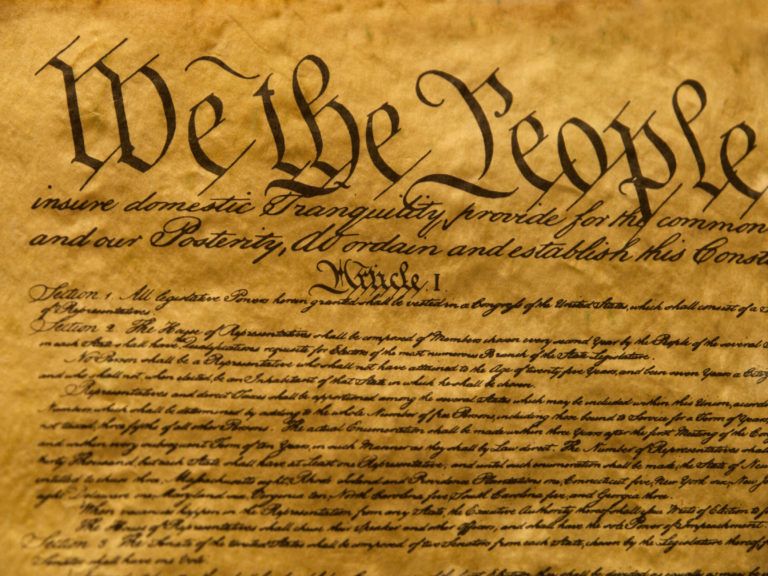 We the People
insure domestic Tranquility, provide for the common
and our Posterity, do ordain and establish this Const
Article. I.
Section. 1. All legislative Powers herein granted shall be vested in a Congress of the United States, which shall consist of a
of Representatives.
Section. 2. The House of Representatives shall be composed of Members chosen every second Year by the People of the several
in each State shall have the Qualifications requisite for Electors of the most numerous Branch of the State Legislature.
No Person shall be a Representative who shall not have attained to the Age of twenty five Years, and been seven Years a Citiz
and who shall not, when elected, be an Inhabitant of that State in which he shall be chosen.
Representatives and direct Taxes shall be apportioned among the several States which may be included within this Union, accord
Numbers, which shall be determined by adding to the whole Number of free Persons, including those bound to Service for a Term of Years
not taxed, three fifths of all other Persons. The actual Enumeration shall be made within three Years after the first Meeting of the Con
and within every subsequent Term of ten Years, in such Manner as they shall by Law direct. The Number of Representatives shall
thirty Thousand, but each State shall have at Least one Representative; and until such enumeration shall be made, the State of New
entitled to chuse three, Massachusetts eight, Rhode Island and Providence Plantations one, Connecticut five, New York six, New J
eight, Delaware one, Maryland six, Virginia ten, North Carolina five, South Carolina five, and Georgia three.
When vacancies happen in the Representation from any State, the Executive Authority thereof shall issue Writs of Election to f
The House of Representatives shall chuse their Speaker and other Officers; and shall have the sole Power of Impeachment.
Section. 3. The Senate of the United States shall be composed of two Senators from each State, chosen by the Legislature thereof, f
Senator shall have one Vote.